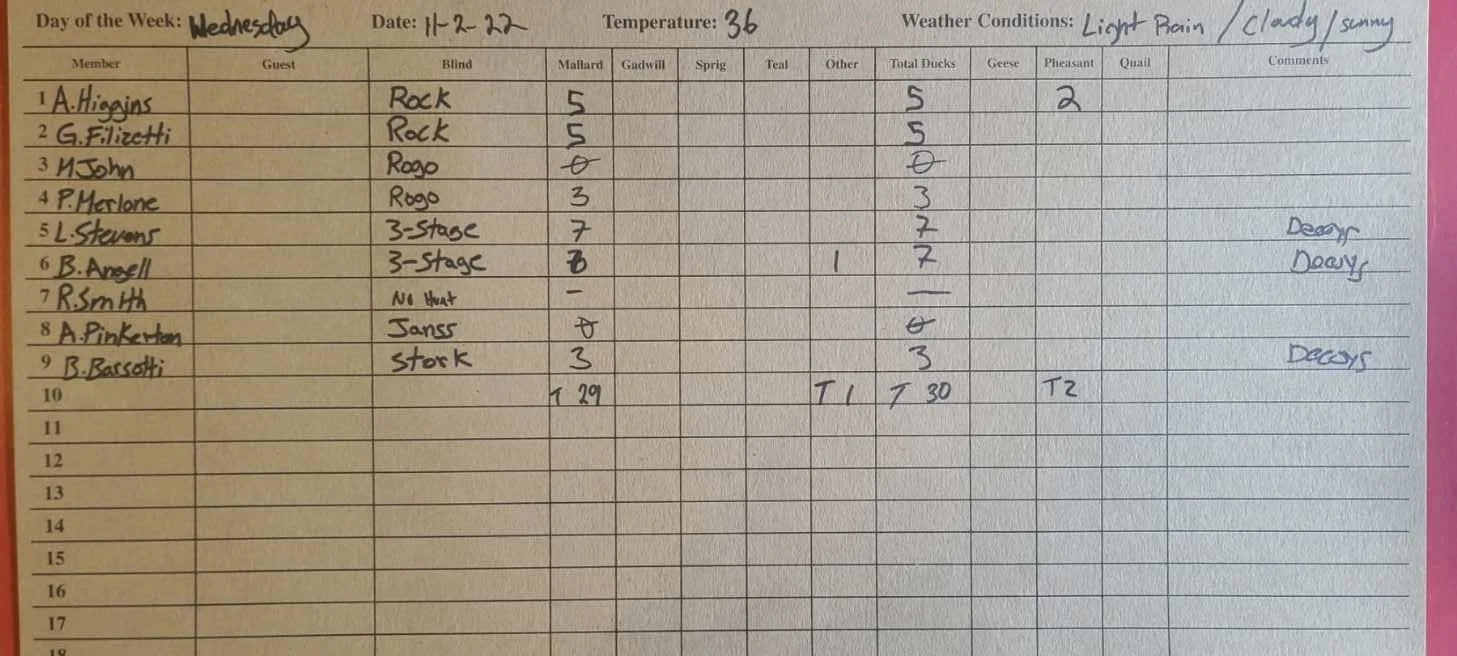 Day of the Week: Wednesday Date: 11-2-22 Temperature: 36 Weather Conditions: Light Rain / Cloudy / sunny
Member Guest Blind Mallard Gadwill Sprig Teal Other Total Ducks Geese Pheasant Quail Comments
1 A.Higgins Rock 5 5 2
2 G.Filizetti Rock 5 5
3 M.John Rogo 0 0
4 P.Merlone Rogo 3 3
5 L.Stevens 3-Stage 7 7 Decoys
6 B.Angell 3-Stage 6 1 7 Decoys
7 R.Smith No Hunt - —
8 A.Pinkerton Janss 0 0
9 B.Bassotti Stork 3 3 Decoys
10 T 29 T 1 T 30 T2
11
12
13
14
15
16
17
18